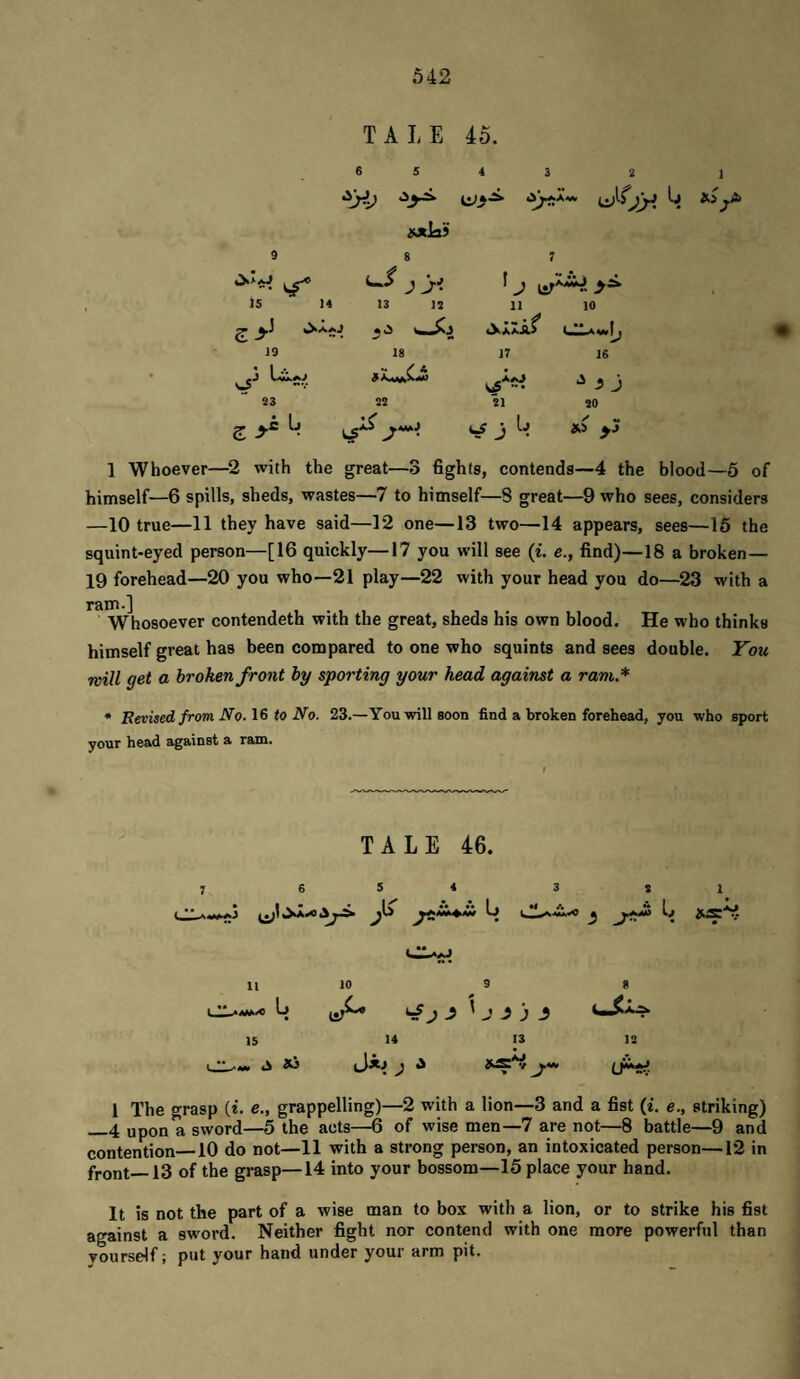 542
TALE 45.
6 5 4 3 2 1
هرکه با بزرگان ستیزد خون خود ریزد
قطعه
9 8 7
خویشتن را بزرگ می بیند
15 14 13 12 11 10
راست گفتند یک دو بیند لوچ
19 18 17 16
زود بینی شکسته پیشانی
23 22 21 20
تو که بازی بسر کنی با غوچ
1 Whoever—2 with the great—3 fights, contends—4 the blood—5 of
himself—6 spills, sheds, wastes—7 to himself—8 great—9 who sees, considers
—10 true—11 they have said—12 one—13 two—14 appears, sees—15 the
squint-eyed person—[16 quickly—17 you will see (i. e., find)—18 a broken—
19 forehead—20 you who—21 play—22 with your head you do—23 with a
ram.]
Whosoever contendeth with the great, sheds his own blood. He who thinks
himself great has been compared to one who squints and sees double. You
will get a broken front by sporting your head against a ram.*
* Revised from No. 16 to No. 23.—You will soon find a broken forehead, you who sport
your head against a ram.
TALE 46.
7 6 5 4 3 2 1
پنجه با شیر و مشت با شمشیر کار خردمندان نیست
بیت
11 10 9 8
جنگ و زورآوری مکن با مست
15 14 13 12
پیش سر پنجه در بغل نه دست
1 The grasp (i. e., grappelling)—2 with a lion—3 and a fist (i. e., striking)
—4 upon a sword—5 the acts—6 of wise men—7 are not—8 battle—9 and
contention—10 do not—11 with a strong person, an intoxicated person—12 in
front—13 of the grasp—14 into your bosom—15 place your hand.
It is not the part of a wise man to box with a lion, or to strike his fist
against a sword. Neither fight nor contend with one more powerful than
yourself; put your hand under your arm pit.